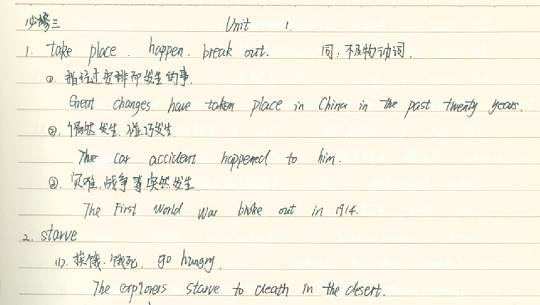 必修三 Unit 1.
1. take place. happen. break out. 同:不及物动词.
①. 指经过安排而发生的事.
Great changes have taken place in China in the past twenty years.
②. 偶然发生.碰巧发生.
The car accident happened to him.
③. 灾难.战争等突然发生.
The First World War broke out in 1914.
2. starve
(1). 挨饿.饿死. go hungry.
The explorers starve to death in the desert.